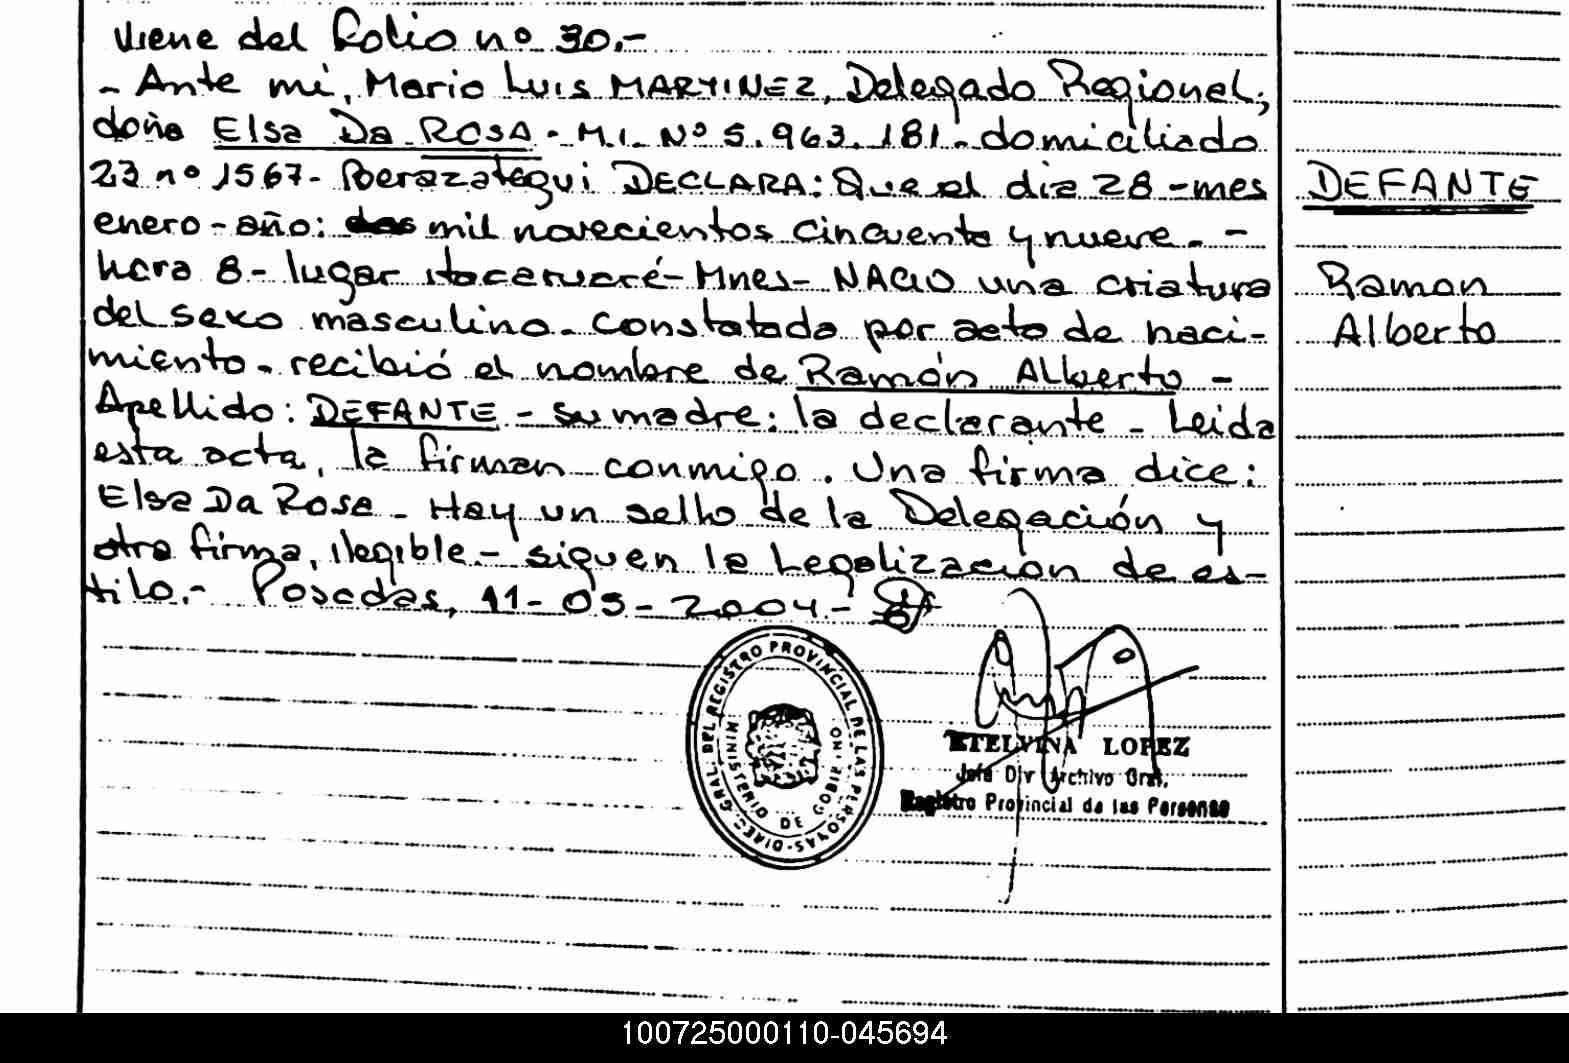 Viene del Folio nº 30.-
- Ante mí, Mario Luis MARTINEZ, Delegado Regional,
doña Elsa Da ROSA - M.I. Nº 5.963.181 - domiciliado
23 nº 1567 - Berazategui DECLARA: Que el día 28 - mes
enero - año: dos mil novecientos cincuenta y nueve. -
hora 8 - lugar Itacaruaré - Mnes - NACIO una criatura
del sexo masculino - Constatada por acto de naci-
miento - recibió el nombre de Ramón Alberto -
Apellido: DEFANTE - su madre: la declarante - Leida
esta acta, la firman conmigo. Una firma dice:
Elsa Da Rosa - Hay un sello de la Delegación y
otra firma, ilegible.- siguen la Legalización de es-
tilo.- Posadas, 11-05-2004.-
DEFANTE
Ramon
Alberto
DIREC. GRAL. DEL REGISTRO PROVINCIAL DE LAS PERSONAS
MINISTERIO DE GOBIERNO
ETELVINA LOPEZ
Jefa Div Archivo Gral.
Registro Provincial de las Personas
100725000110-045694